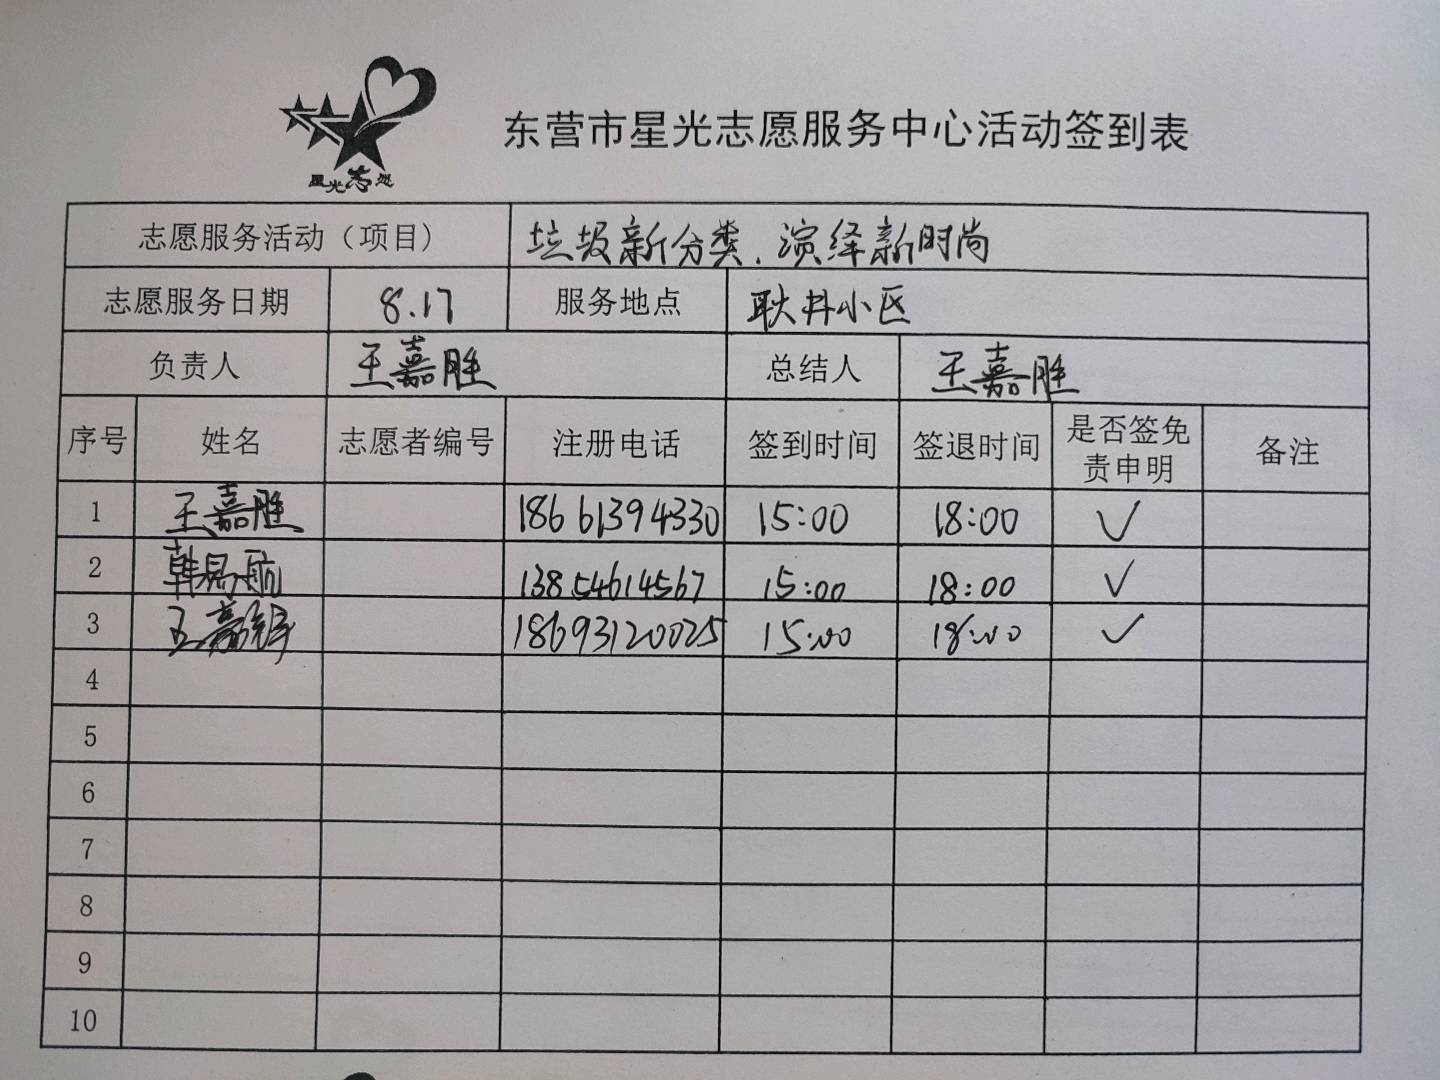 星光志愿
东营市星光志愿服务中心活动签到表
志愿服务活动（项目） 垃圾新分类.演绎新时尚
志愿服务日期 8.17 服务地点 耿井小区
负责人 王嘉胜 总结人 王嘉胜
序号 姓名 志愿者编号 注册电话 签到时间 签退时间 是否签免责申明 备注
1 王嘉胜 18661394330 15:00 18:00 ✓
2 韩易航 13854614567 15:00 18:00 ✓
3 18693120025 15:00 18:00 ✓
4
5
6
7
8
9
10